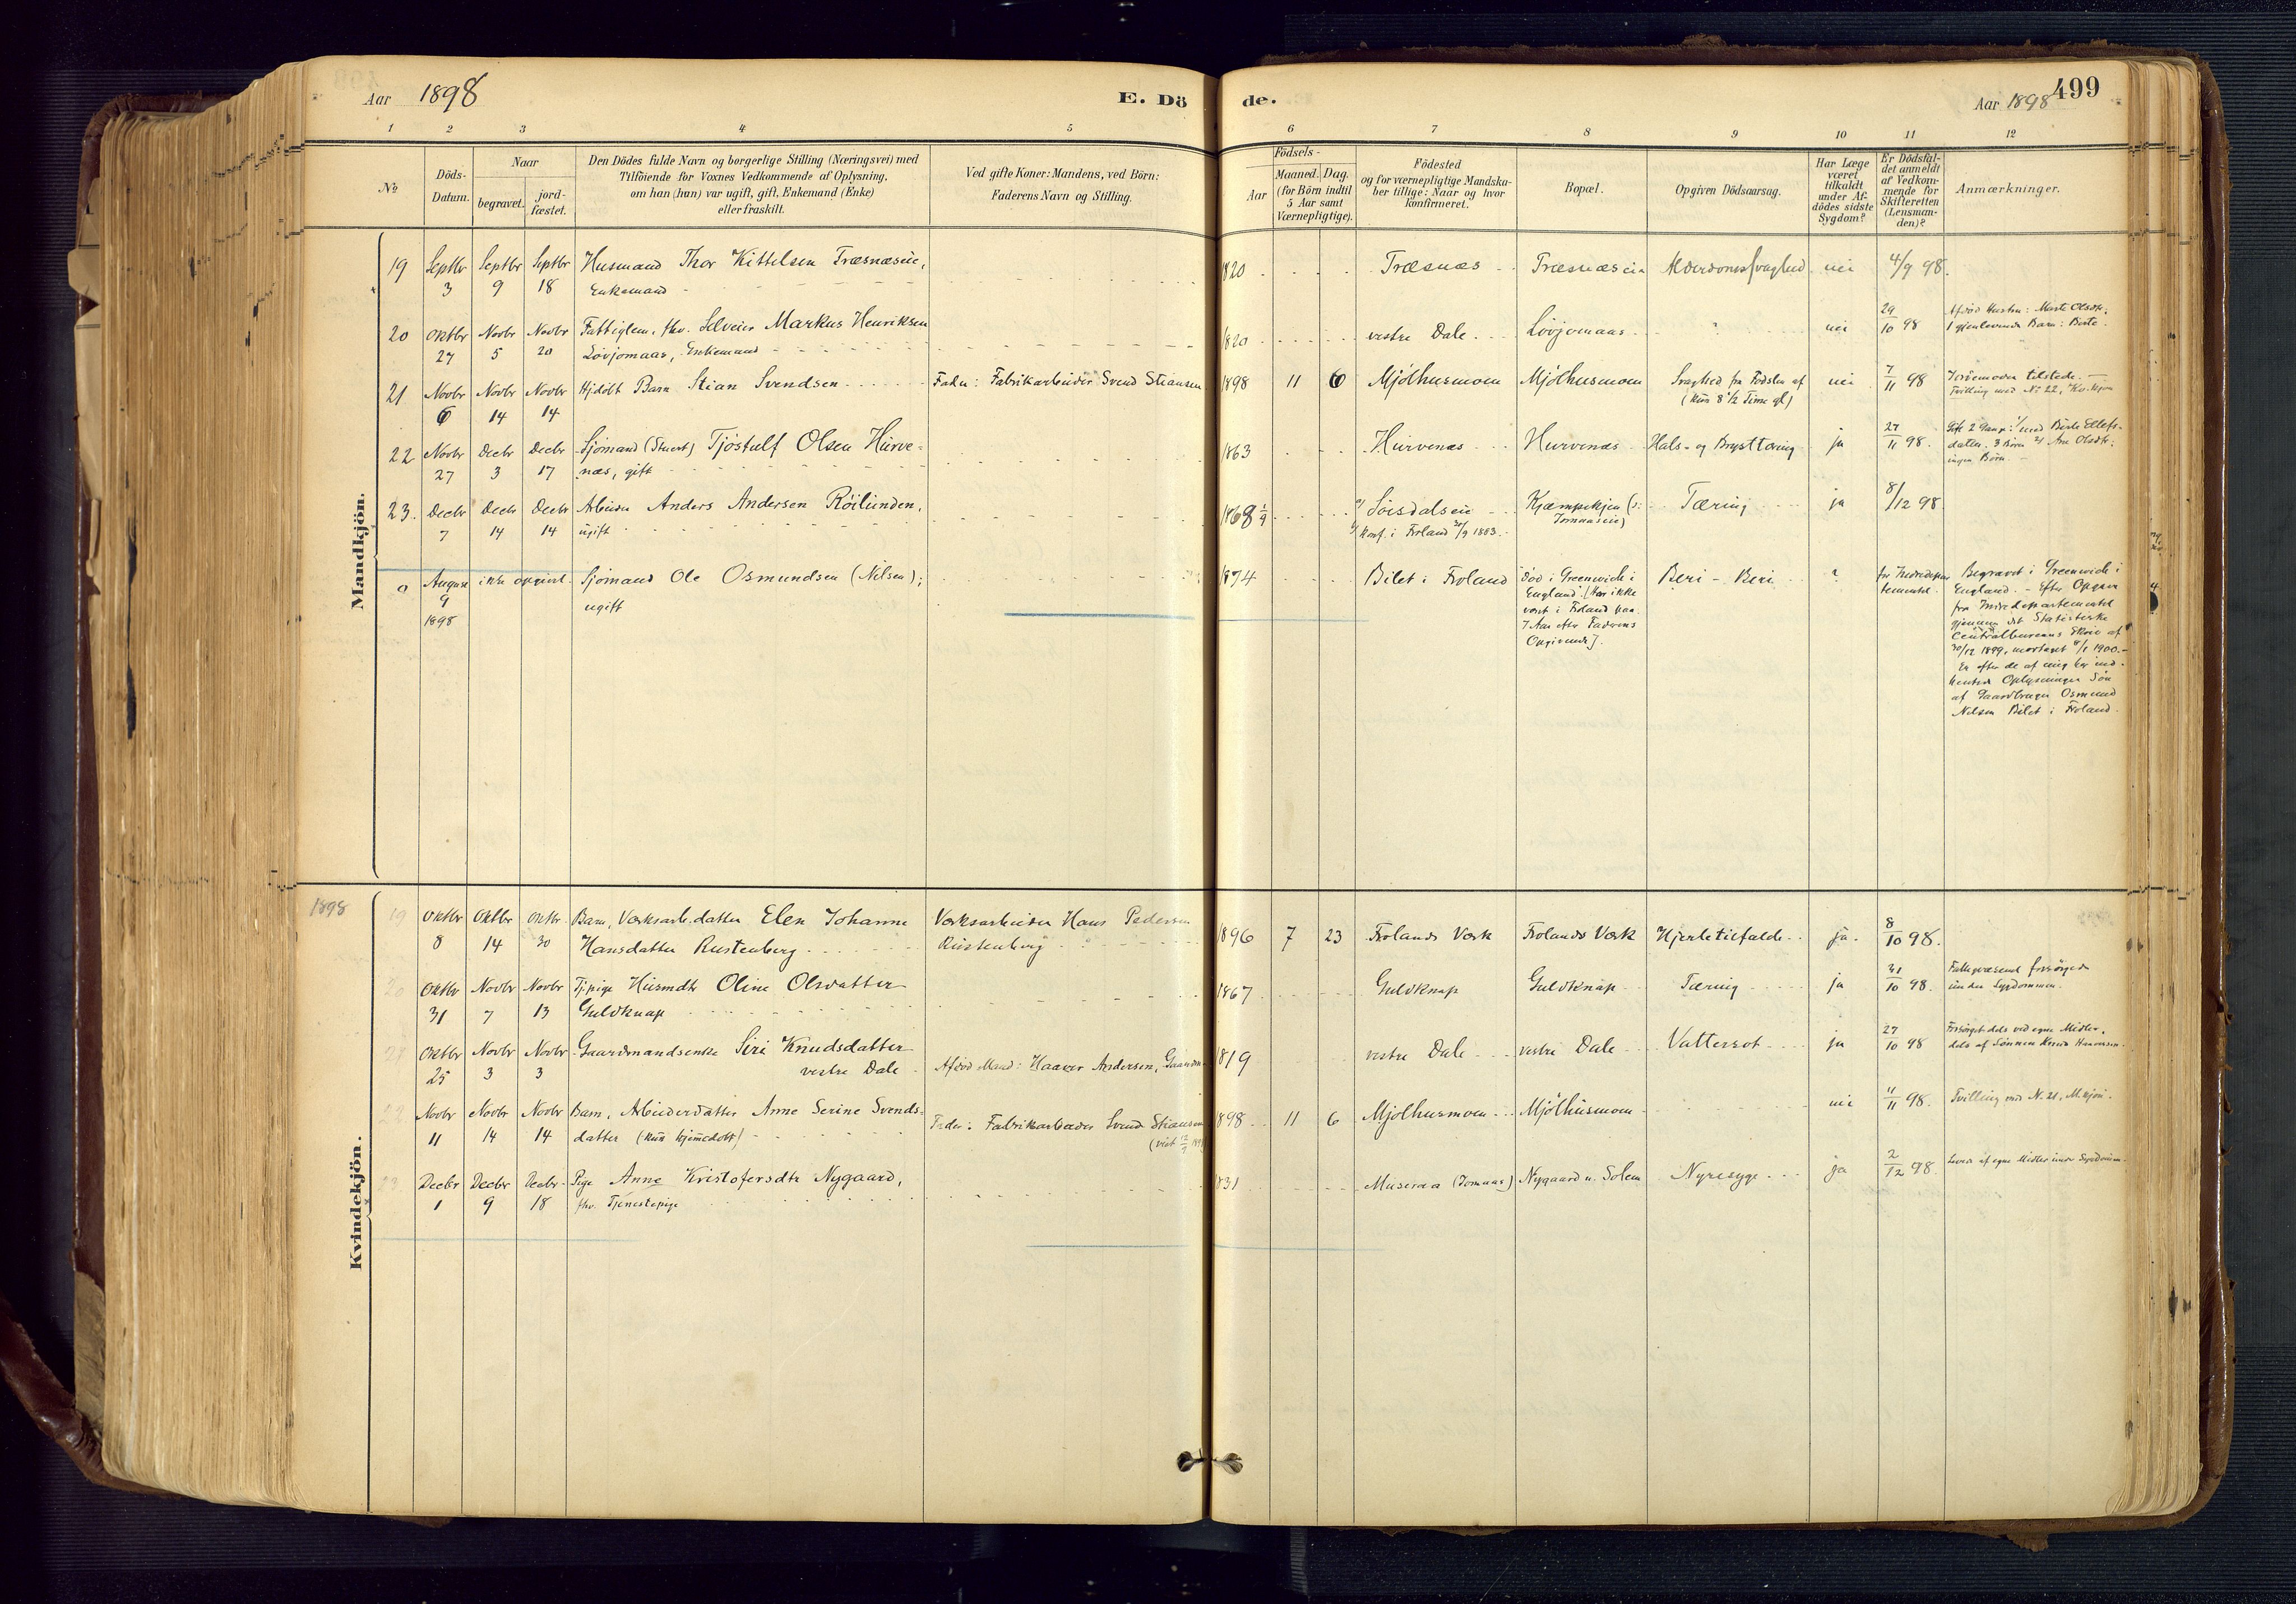 Aar 1898
E. Dö
de.
Aar 1898
499
1 2 3 4 5 6 7 8 9 10 11 12
No
Döds-Datum.
Naar
begravet.
jord-fæstet.
Den Dödes fulde Navn og borgerlige Stilling (Næringsvei) med
Tilföiende for Voxnes Vedkommende af Oplysning,
om han (hun) var ugift, gift, Enkemand (Enke)
eller fraskilt.
Ved gifte Koner: Mandens, ved Börn:
Faderens Navn og Stilling.
Födsels-
Aar
Maaned. Dag.
(for Börn indtil
5 Aar samt
Værnepligtige).
Födested
og for værnepligtige Mandska-
ber tillige: Naar og hvor
konfirmeret.
Bopæl.
Opgiven Dödsaarsag.
Har Læge
været
tilkaldt
under Af-
dödes sidste
Sygdom?
Er Dödsfal-
det anmeldt
af Vedkom-
mende for
Skifteretten
(Lensman-
den)?
Anmærkninger.
Mandkjön.
19 Septbr Septbr Septbr Husmand Thor Kittelsen Træsnæseie, 1820 Træsnæs Træsnæseie Alderdomssvaghed nei 4/9 98.
3 9 18 Enkemand
20 Oktbr Novbr Novbr Fattiglem, fhv. Selveier Markus Henriksen 1820 vestre Dale Lövjomaas " nei 29/10 98 Afdöd Hustru: Marte Olsdtr.
27 5 20 Lövjomaas, Enkemand 1 gjenlevende Barn: Berte.
21 Novbr Novbr Novbr Hjdöbt Barn Stian Svendsen Fader: Fabrikarbeider Svend Stiansen 1898 11 6 Mjölhusmoen Mjölhusmoen Svaghed fra Födslen af nei 7/11 98 Jordemoder tilstede.
6 14 14 (kun 8 1/2 Time gl) Tvilling med No 22, Kv.kjön
22 Novbr Decbr Decbr Sjömand (Stuert) Tjöstulf Olsen Hurve- 1863 Hurvenæs Hurvenæs Hals- og Brysttæring ja 27/11 98. Gift 2 Gange: 1/ med Berte Ellefs-
27 3 17 næs, gift datter, 3 Börn 2/ Ane Olsdtr.
ingen Börn.
23. Decbr Decbr Decbr Arbeider Anders Andersen Röilunden, 1868 1/9 Löisdalseie Kjæmpekjen Tæring ja 8/12 98
7 14 14 ugift konf. i Froland 30/9 1883.
0 August ikke opgivet. Sjömand Ole Osmundsen (Nilsen); 1874 Bilet i Froland död i Greenwich i Beri-Beri ? Begravet i Greenwich i
9 ugift England. [Har ikke England. - Efter Opgave
1898 været i Froland paa fra Indredepartementet
7 Aar efter Faderens gjennem det Statistiske
Opgivende]. Centralbureaus Skriv af
30/12 1899, modtaget 8/1 1900.
Er efter de af mig her ind-
hentede Oplysninger Sön
af Gaardbruger Osmund
Nilsen Bilet i Froland.
1898
Kvindekjön.
19 Oktbr Oktbr Oktbr Barn, Værksarb.datter Elen Johanne Værksarbeider Hans Pedersen 1896 7 23 Frolands Værk Frolands Værk Hjertetilfælde ja. 8/10 98.
8 14 30 Hansdatter Rustenberg Rustenberg
20 Oktbr Novbr Novbr Tj.pige Husmdtr Oline Olsdatter 1867 Guldknap Guldknap Tæring ja 31/10 98. Fattigvæsenet forsörged
31 7 13 Guldknap under Sygdommen.
21 Oktbr Novbr Novbr Gaardmandsenke Siri Knudsdatter 1819 vestre Dale vestre Dale Vattersot ja 27/10 98 Forsörget dels ved egne Midler,
25 3 3 vestre Dale Afdöd Mand: Haaver Andersen, Gaardm. dels af Sönnen
22 Novbr Novbr Novbr Barn, Arbeiderdatter Anne Serine Svends- Fader: Fabrikarbeider Svend Stiansen 1898 11 6 Mjölhusmoen Mjölhusmoen nei 11/11 98. Tvilling med N. 21, M.kjön.
11 14 14 datter (kun hjemmedöbt)
23 Decbr Decbr Decbr Pige Anne Kristofersdtr Nygaard, 1831 Museraa (Jomaas) Nygaard u. Solem Nyresyge ja 2/12 98. Leved af egne Midler under Sygdommen.
1 9 18 fhv. Tjenestepige